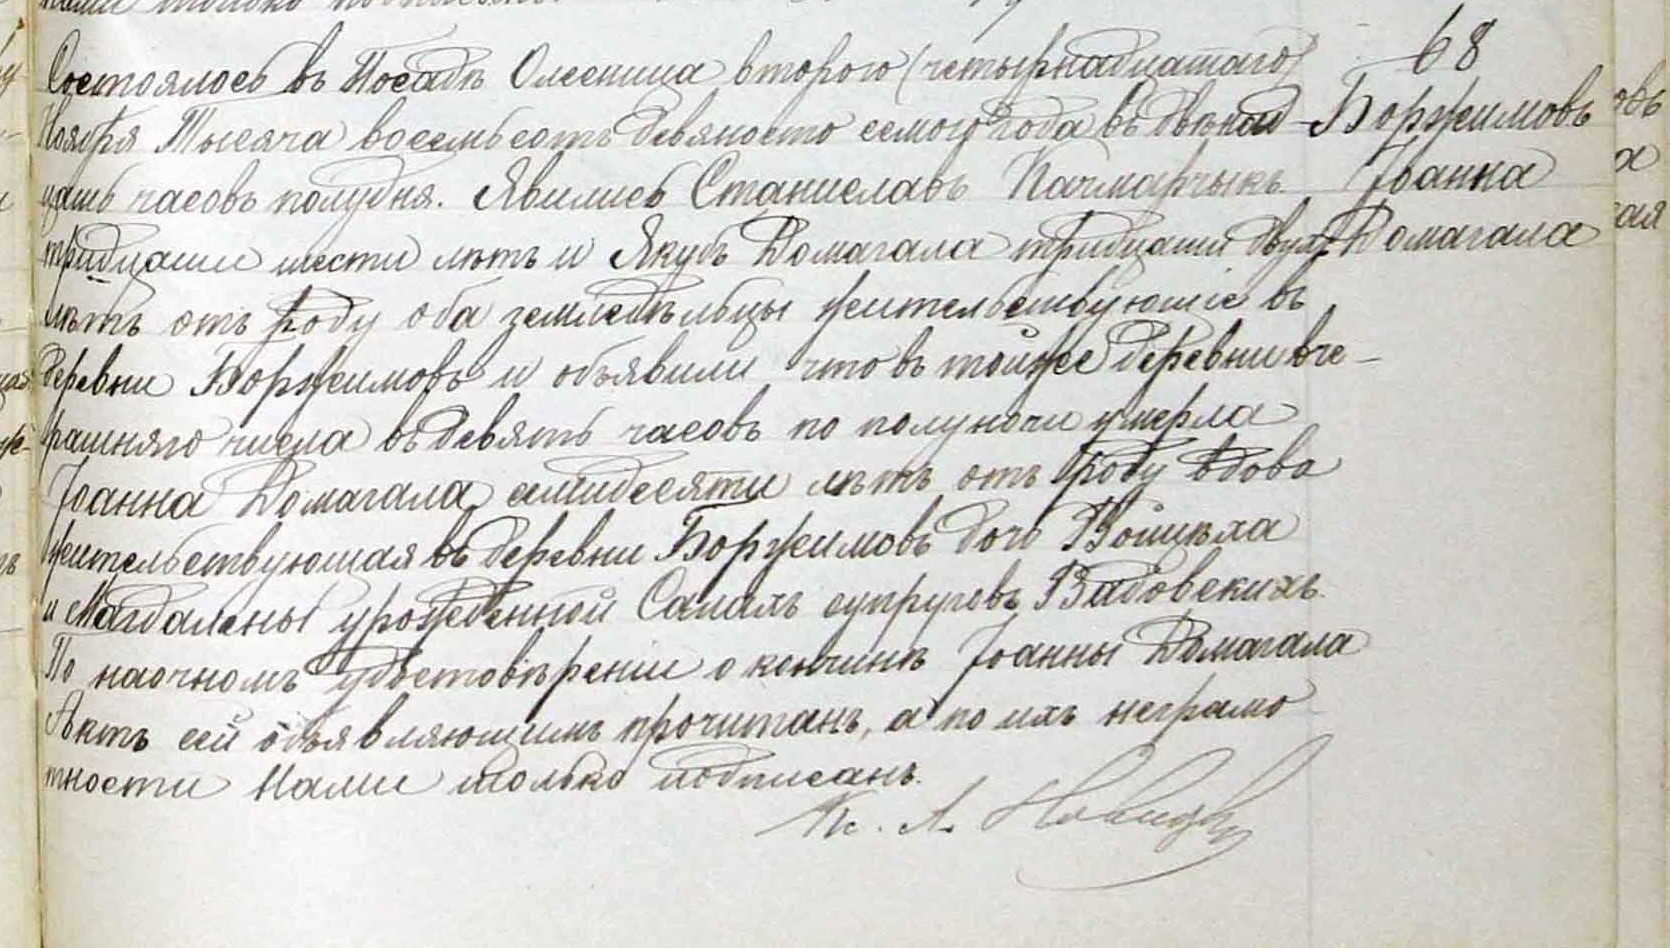 68
Боржимовъ
Іоанна
Домагала
Состоялось въ Посадѣ Олесница второго (четырнадцатаго)
Ноября Тысяча восемьсотъ девяносто семого года въ двѣнад-
цать часовъ полудня. Явились Станиславъ Качмарчыкъ
тридцати шести лѣтъ и Якубъ Домагала тридцати двухъ
лѣтъ отъ роду оба земледѣльцы жительствующіе въ
деревни Боржимовъ и объявили что въ тойже деревни вче-
рашняго числа въ девять часовъ по полуночи умерла
Іоанна Домагала семидесяти лѣтъ отъ роду вдова
жительствующая въ деревни Боржимовъ дочь Войцѣха
и Магдалены урожденной Самаль супруговъ Вадовскихъ.
По наочномъ удостовѣреніи о кончинѣ Іоанны Домагала
Актъ сей объявляющимъ прочитанъ, а по ихъ неграмо
тности Нами только подписанъ.